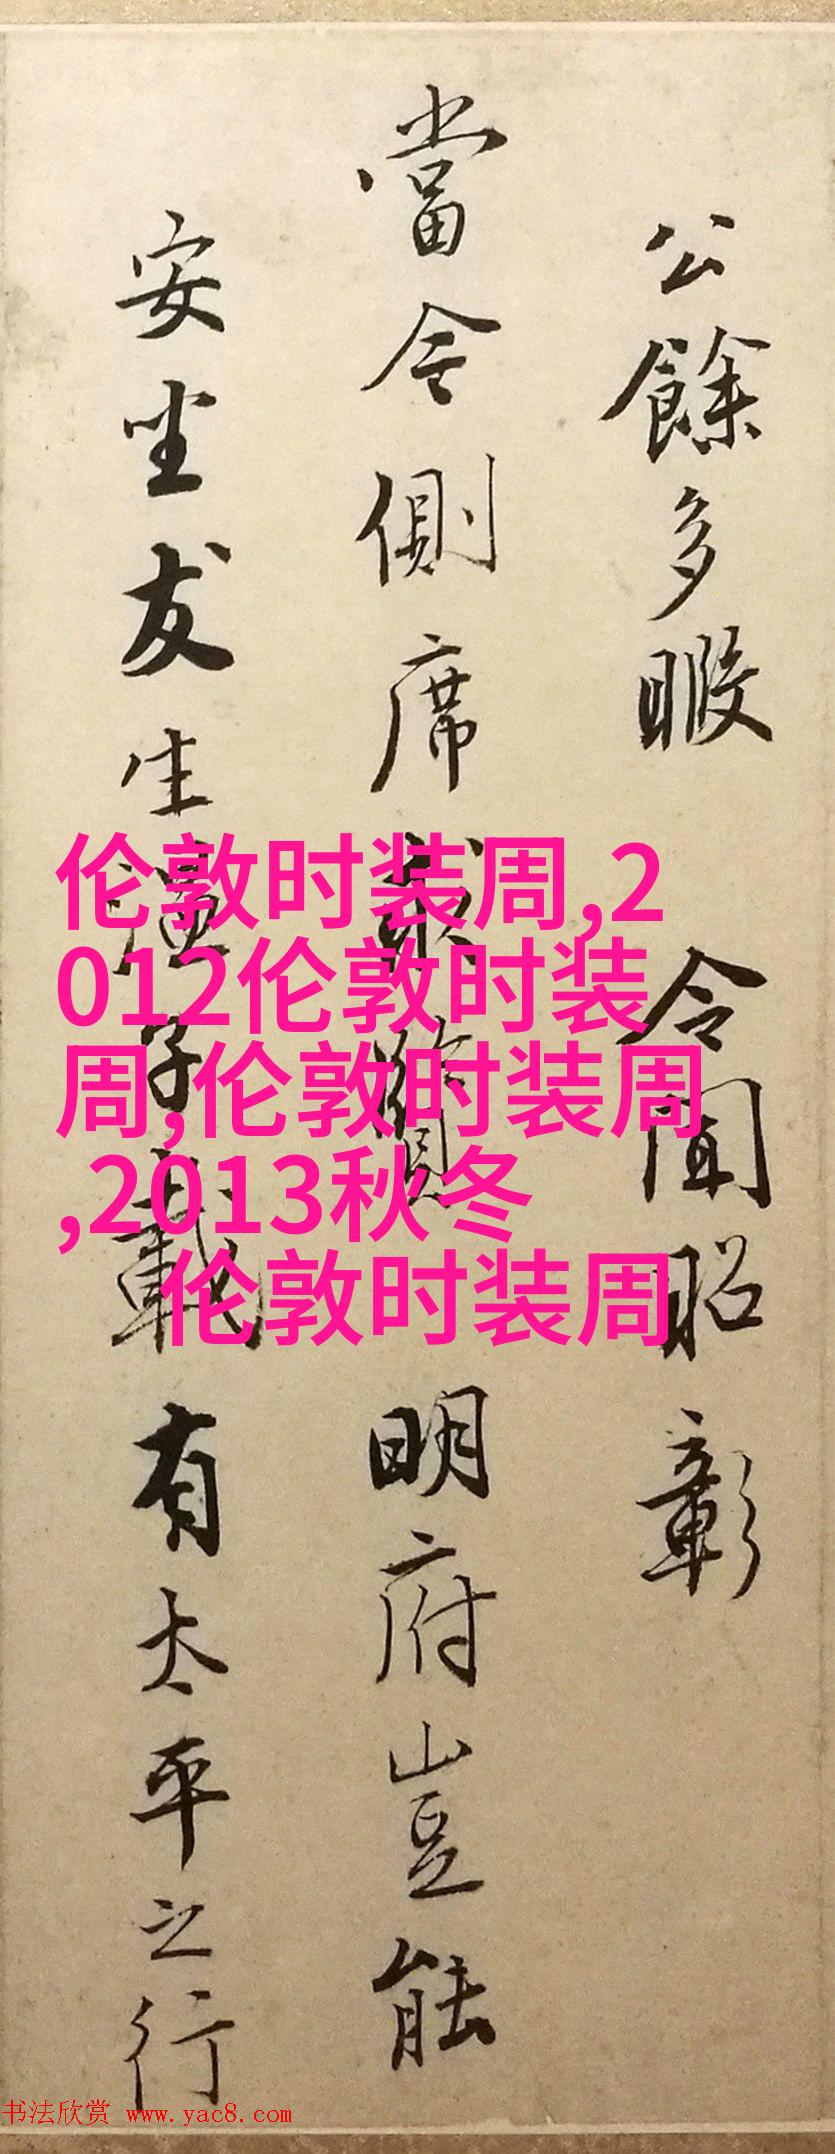 公餘多暇 令聞昭彰
當今側席求賢 明府豈能
安坐友生 子 載有太平之行
伦敦时装周,2
012伦敦时装
周,伦敦时装周
,2013秋冬
伦敦时装周
书法欣赏 www.yac8.com